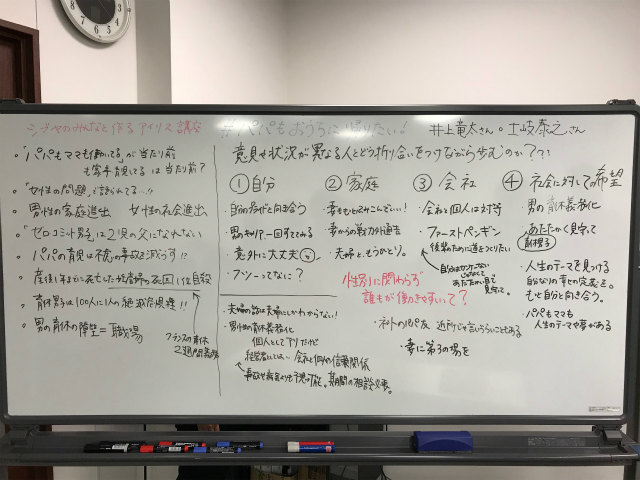 シブヤのみんなと作るアイリス講座
・「パパもママも働いてる」が当たり前
も家事育児してる は当たり前?
・「女性の問題」と語られてる…!!
・男性の家庭進出 女性の社会進出
・「ゼロコミット男子」は2児の父になれない
・パパの育児は不慮の事故減らす!?
・産後1年までに死亡した妊産婦の死因1位自殺
・育休男子は100人に1人の絶滅危惧種!!
・男の育休の障壁=職場
フランスの育休
2週間義務
#パパもおうちに帰りたい!
井上竜太さん・土岐泰之さん
意見や状況が異なる人とどう折り合いをつけながら歩むのか???
①自分
自分の弱さと向き合う
・男のキャリア一回すててみる
・意外に大丈夫
・フツーってなに?
②家庭
・妻ももとめてみこんでいい!
・妻からの戦力外通告
・夫婦と、もうひとり。
③会社
・会社と個人は対等
・ファーストペンギン
後輩のために道をつくりたい
自分はセカンドじゃない
あたたかい目で
見守って。
④社会に対して希望
・男の育休義務化
・あたたかく見守って
・人生のテーマを見つける
自分なりの幸せの定義を。
もっと自分と向き合う。
・パパもママも
人生のテーマや夢がある
性別に関わらず
誰もが働きやすいって?
・夫婦の話は夫婦にしかわからない!
・男性の育休義務化
個人として アリだけど
経営者としては… 会社と個人の信頼関係
事故や病気よりも予測可能。長期間の相談必要。
・ネットのパパ友 近所じゃ言いづらいこともある
・妻に第3の場を